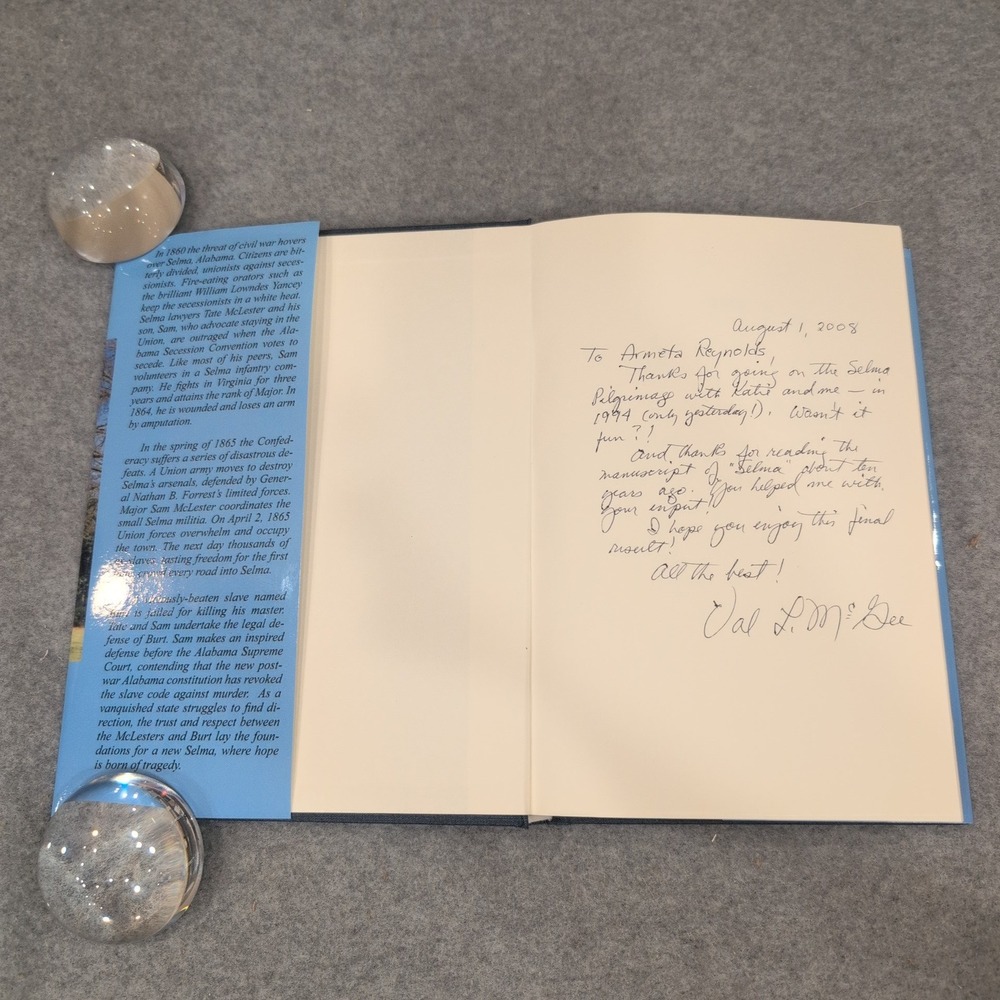 In 1860 the threat of civil war hovers
over Selma, Alabama. Citizens are bit-
terly divided, unionists against seces-
sionists. Fire-eating orators such as
the brilliant William Lowndes Yancey
keep the secessionists in a white heat.
Selma lawyers Tate McLester and his
son, Sam, who advocate staying in the
Union, are outraged when the Ala-
bama Secession Convention votes to
secede. Like most of his peers, Sam
volunteers in a Selma infantry com-
pany. He fights in Virginia for three
years and attains the rank of Major. In
1864, he is wounded and loses an arm
by amputation.
In the spring of 1865 the Confed-
eracy suffers a series of disastrous de-
feats. A Union army moves to destroy
Selma's arsenals, defended by Gener-
al Nathan B. Forrest's limited forces.
Major Sam McLester coordinates the
small Selma militia. On April 2, 1865
Union forces overwhelm and occupy
the town. The next day thousands of
slaves, tasting freedom for the first
time, crowd every road into Selma.
slave named
Burt is jailed for killing his master.
Tate and Sam undertake the legal de-
fense of Burt. Sam makes an inspired
defense before the Alabama Supreme
Court, contending that the new post-
war Alabama constitution has revoked
the slave code against murder. As a
vanquished state struggles to find di-
rection, the trust and respect between
the McLesters and Burt lay the foun-
dations for a new Selma, where hope
is born of tragedy.
August 1, 2008
To Armeta Reynolds,
Thanks for going on the Selma
Pilgrimage with Katie and me — in
1994 (only yesterday!). Wasn't it
fun?!
And thanks for reading the
manuscript of "Selma" about ten
years ago. You helped me with
your input!
I hope you enjoy this final
result!
All the best!
Val L. McGee